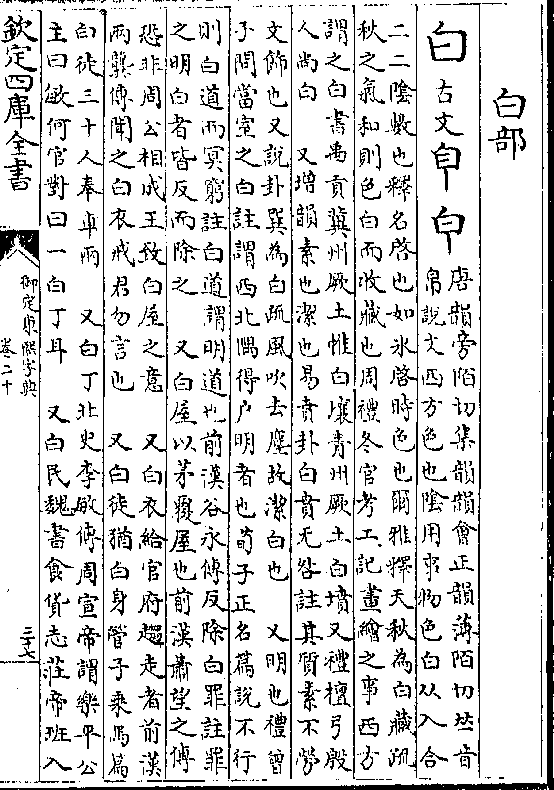 白部
白 古文𦣺𤽁 唐韻旁陌切集韻韻會正韻薄陌切𠀤音
帛說文西方色也陰用事物色白从入合
二二陰數也釋名啓也如氷啓時色也爾雅釋天秋為白藏疏
秋之氣和則色白而收藏也周禮冬官考工記畫繪之事西方
謂之白書禹貢冀州厥土惟白壤青州厥土白墳又禮檀弓殷
人尚白 又增韻素也潔也易賁卦白賁无咎註其質素不勞
文飾也又說卦巽為白疏風吹去塵故潔白也 又明也禮曾
子問當室之白註謂西北隅得戶明者也荀子正名篇說不行
則白道而冥窮註白道謂明道也前漢谷永傳反除白罪註罪
之明白者皆反而除之 又白屋以茅覆屋也前漢蕭望之傳
恐非周公相成王致白屋之意 又白衣給官府趨走者前漢
兩龔傳聞之白衣戒君勿言也 又白徒猶白身管子乗馬篇
白徒三十人奉車兩 又白丁北史李敏傳周宣帝謂樂平公
主曰敏何官對曰一白丁耳 又白民魏書食貨志莊帝班入
欽定四庫全書
御定康熙字典
卷二十
三十七